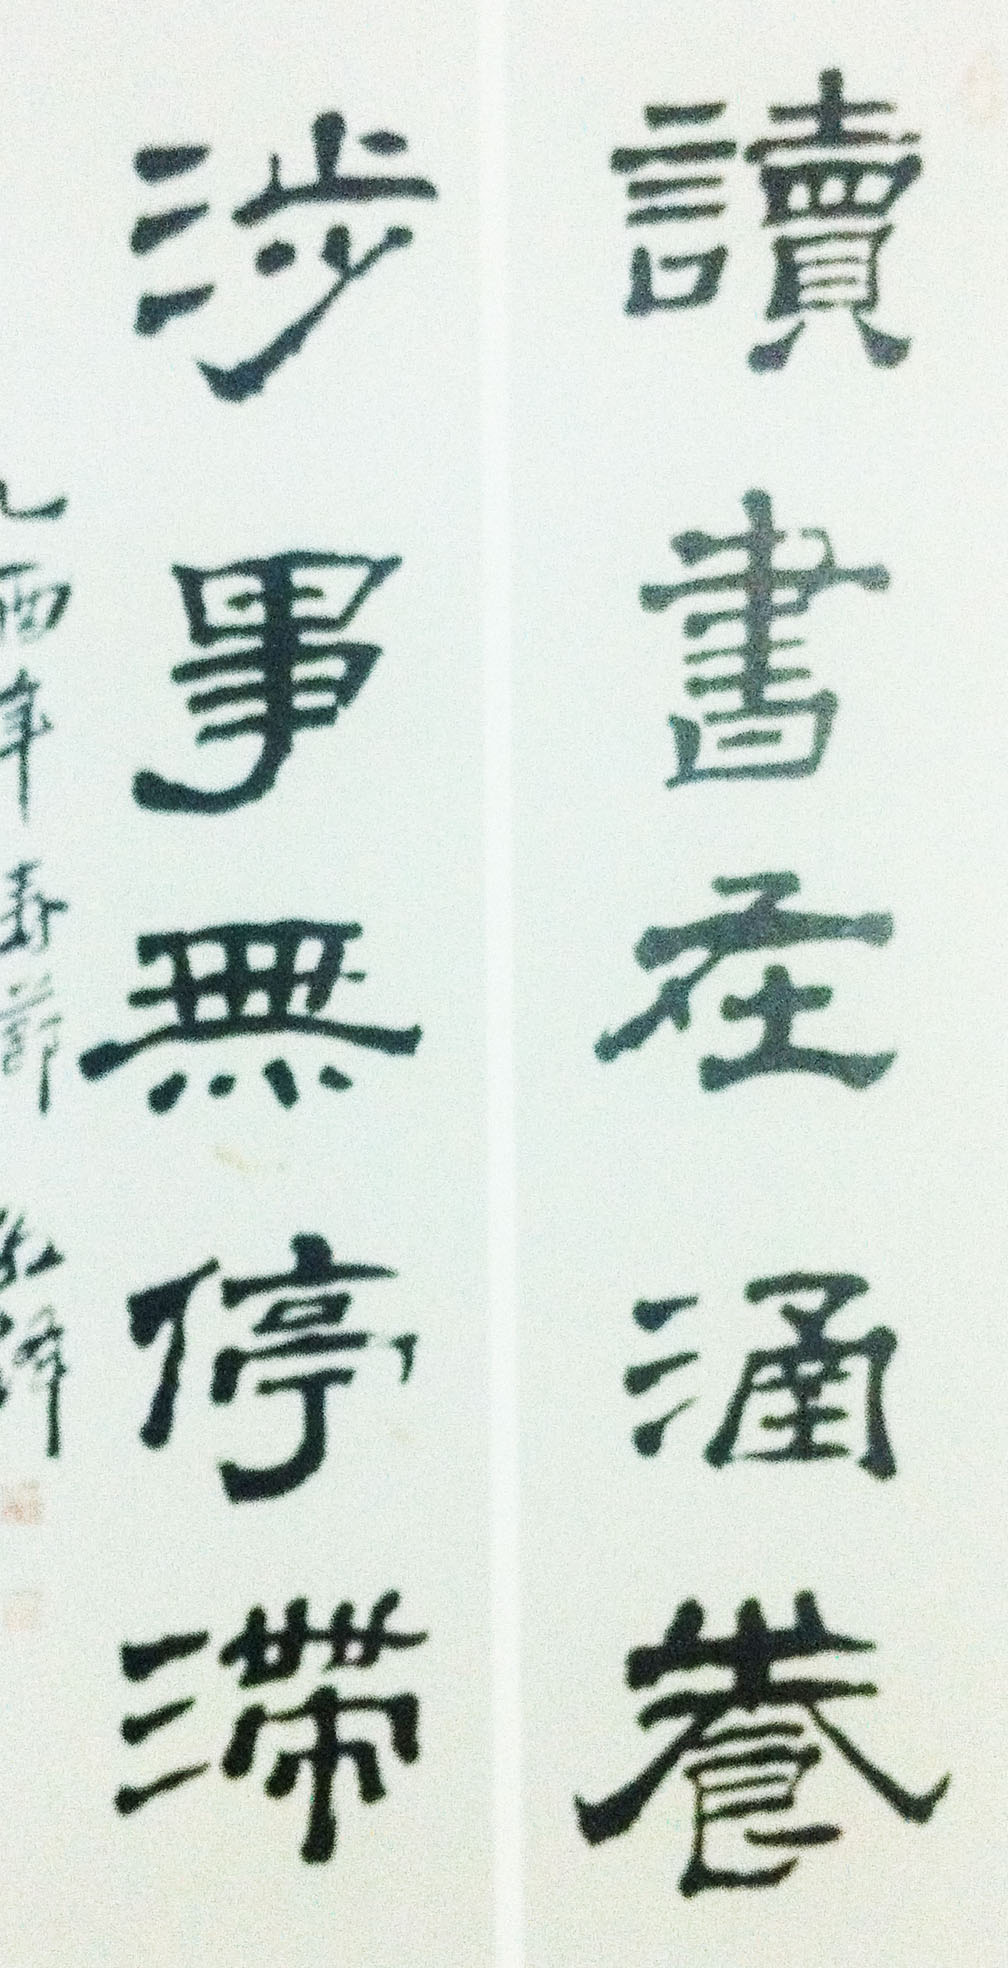 讀書在涵養
涉事無停滯
乙酉年春節